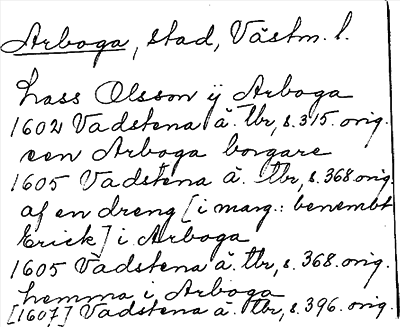 Arboga, stad, Västm. l.
Lass Olsson ÿ Arboga
1602 Vadstena ä. tbr, s. 315. orig.
een Arboga borgare
1605 Vadstena ä. tbr, s. 368 orig.
af en dreng [i marg.: benembt
Erick] i Arboga
1605 Vadstena ä. tbr, s. 368. orig.
hemma i Arboga
[1607] Vadstena ä. tbr, s. 396. orig.